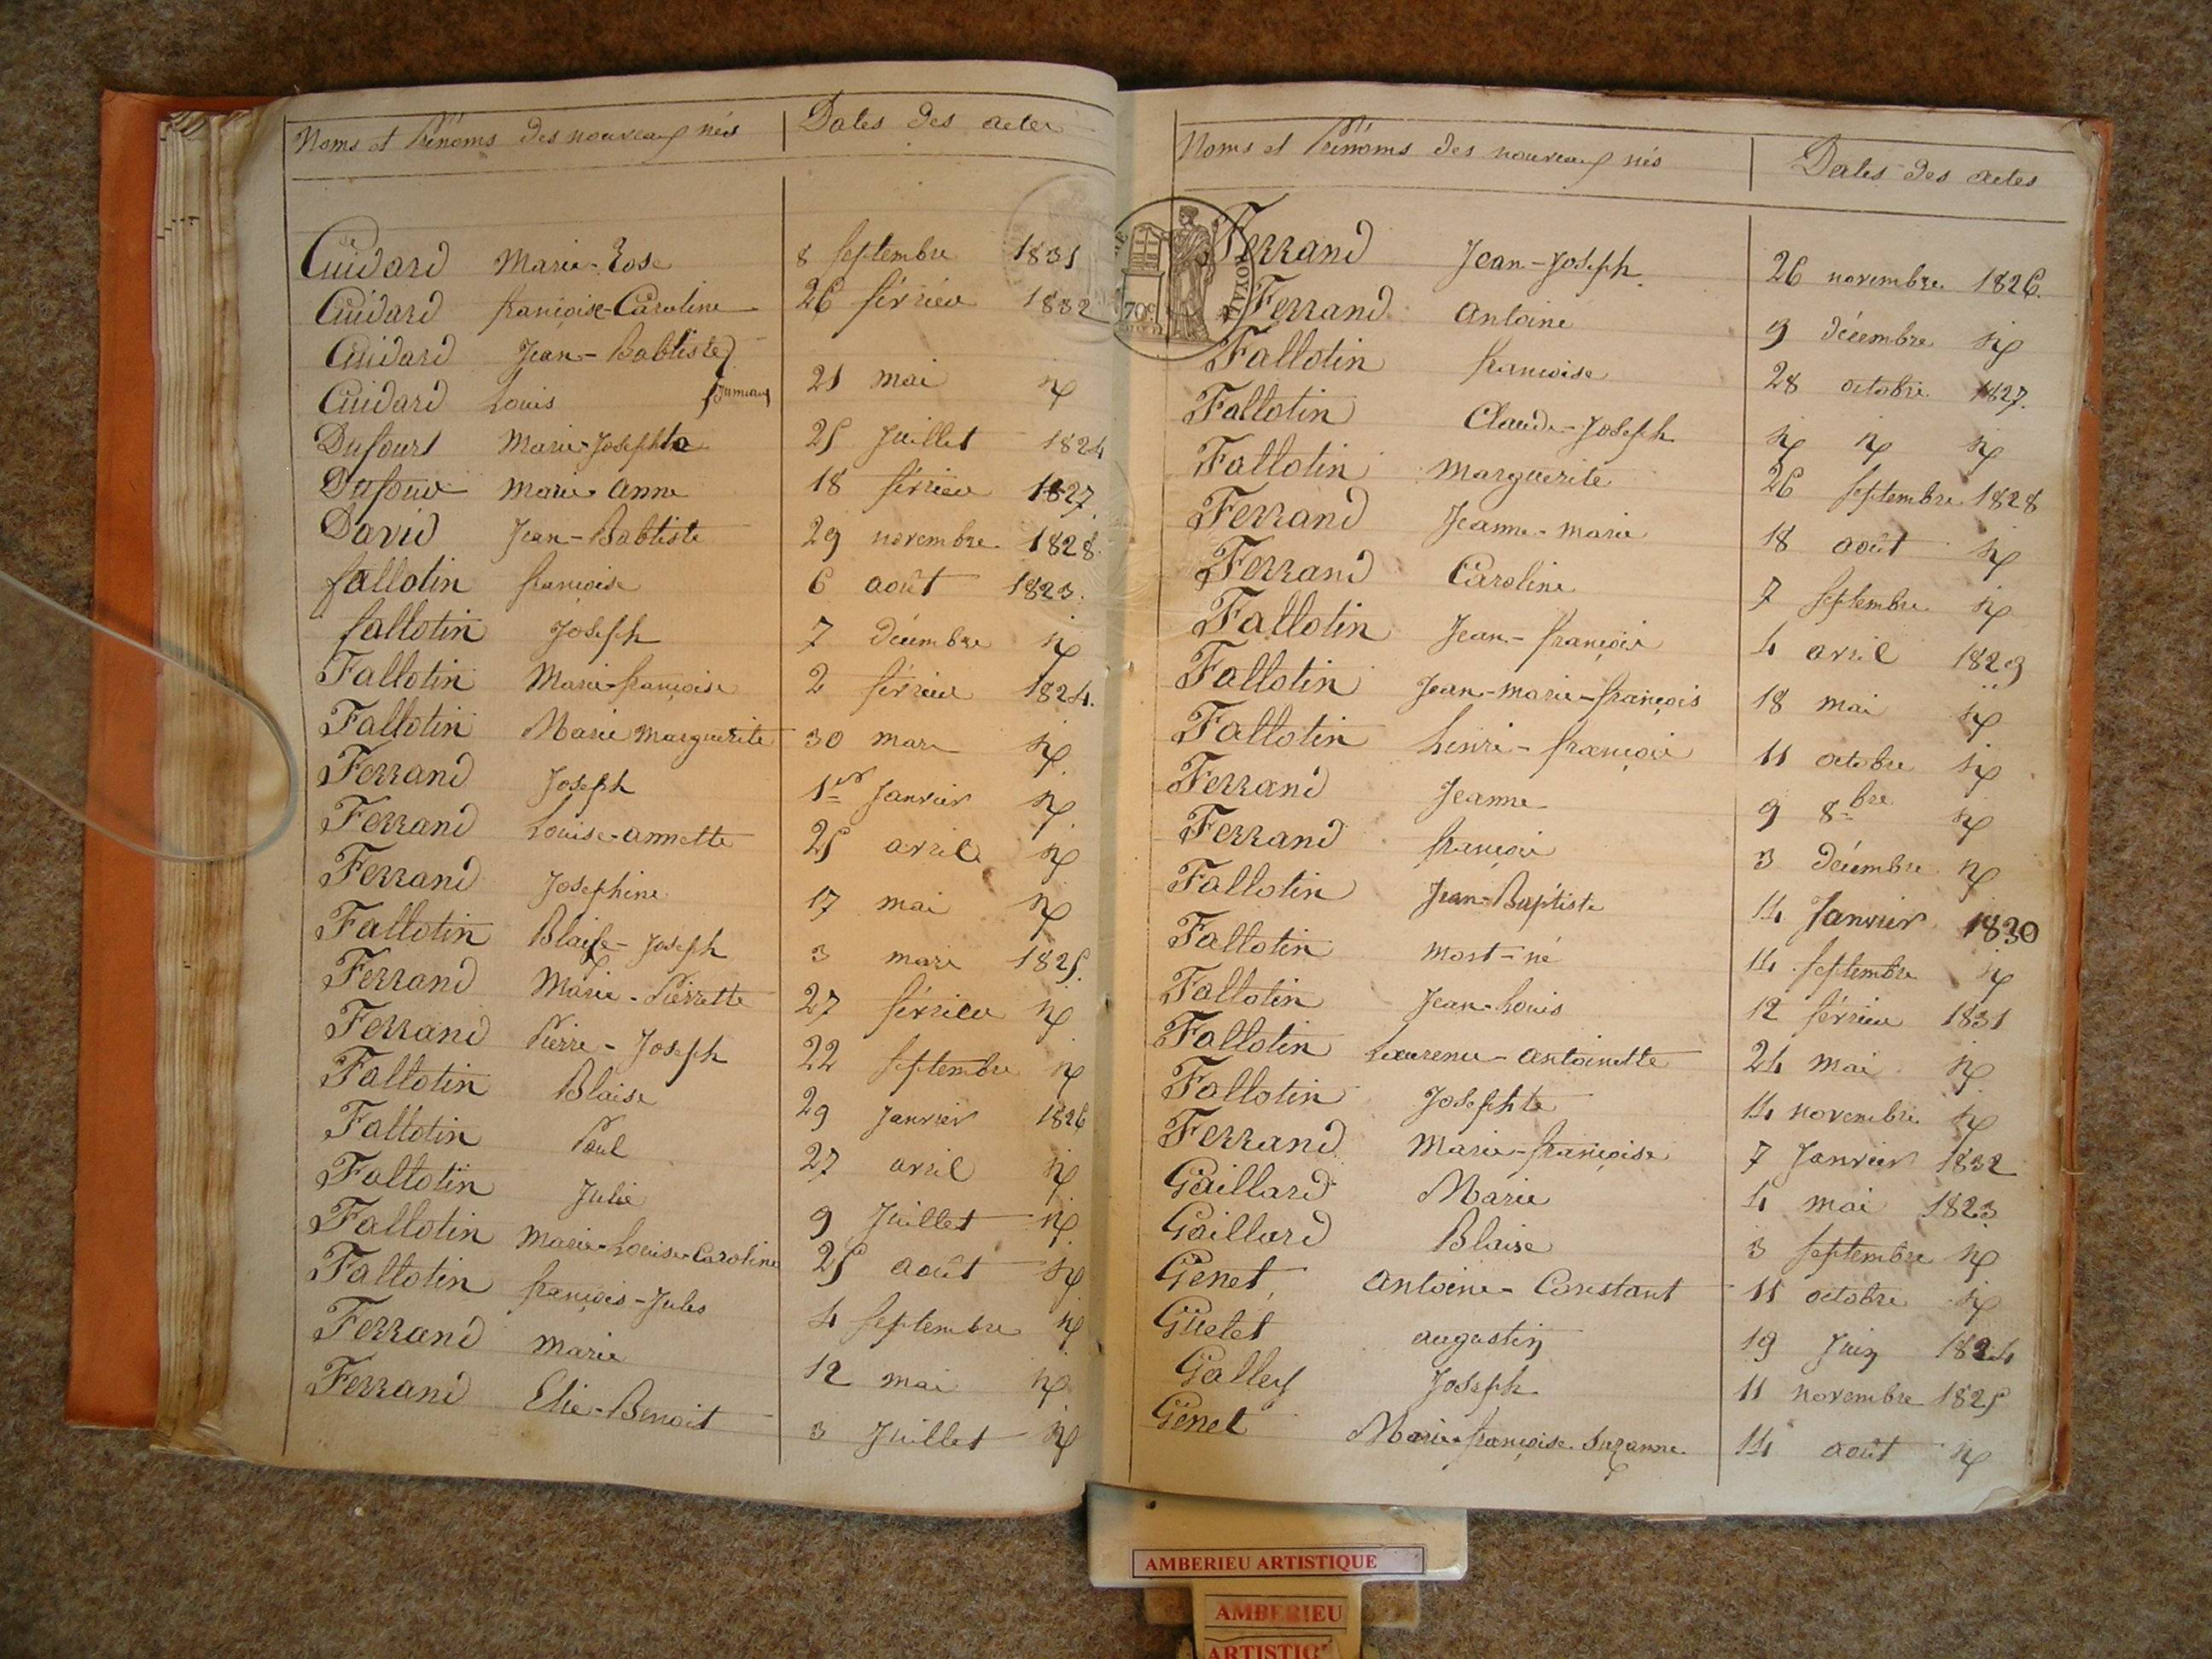 Noms et Prénoms des nouveaux nés Dates des actes
Cuidard Marie-Rose 8 septembre 1831
Cuidard françoise-Caroline 26 février 1832
Cuidard Jean-Babtiste
Cuidard Louis Jumeaux 21 mai id
Dufourt Marie-Josephte 25 Juillet 1824
Dufour Marie Anne 18 février 1827
David Jean-Babtiste 29 novembre 1828
fallotin françoise 6 août 1823
fallotin Joseph 7 décembre id
Fallotin Marie-françoise 2 février 1824
Fallotin Marie Marguerite 30 mars id
Ferrand Joseph 1er Janvier id
Ferrand Louise-annette 25 avril id
Ferrand Josephine 17 mai id
Fallotin Blaise-Joseph 3 mars 1825
Ferrand Marie-Pierrette 27 février id
Ferrand Pierre-Joseph 22 septembre id
Fallotin Blaise 29 Janvier 1826
Fallotin Paul 27 avril id
Fallotin Julie 9 Juillet id
Fallotin Marie-Louise-Caroline 25 août id
Fallotin françois-Jules 4 septembre id
Ferrand Marie 12 mai id
Ferrand Elie-Benoit 3 Juillet id
Noms et Prénoms des nouveaux nés Dates des actes
ROYAL
70c
Ferrand Jean-Joseph 26 novembre 1826
Ferrand Antoine 9 décembre id
Fallotin françoise 28 octobre 1827
Fallotin Claude-Joseph id id id
Fallotin Marguerite 26 septembre 1828
Ferrand Jeanne-marie 18 août id
Ferrand Caroline 7 septembre id
Fallotin Jean-françois 4 avril 1829
Fallotin Jean-marie-françois 18 mai id
Fallotin henri-françois 11 octobre id
Ferrand Jeanne 9 8bre id
Ferrand françois 3 décembre id
Fallotin Jean-Baptiste 14 Janvier 1830
Fallotin mort-né 14 septembre id
Fallotin Jean-Louis 12 février 1831
Fallotin Laurence-antoinette 24 mai id
Fallotin Josephte 14 novembre id
Ferrand Marie-françoise 7 Janvier 1832
Gaillard Marie 4 mai 1823
Gaillard Blaise 3 septembre id
Genet Antoine-Constant 11 octobre id
Guetet augustin 19 Juin 1824
Galley Joseph 11 novembre 1825
Genet Marie-françoise-Suzanne 14 août id
AMBERIEU ARTISTIQUE
AMBERIEU
ARTISTIQ